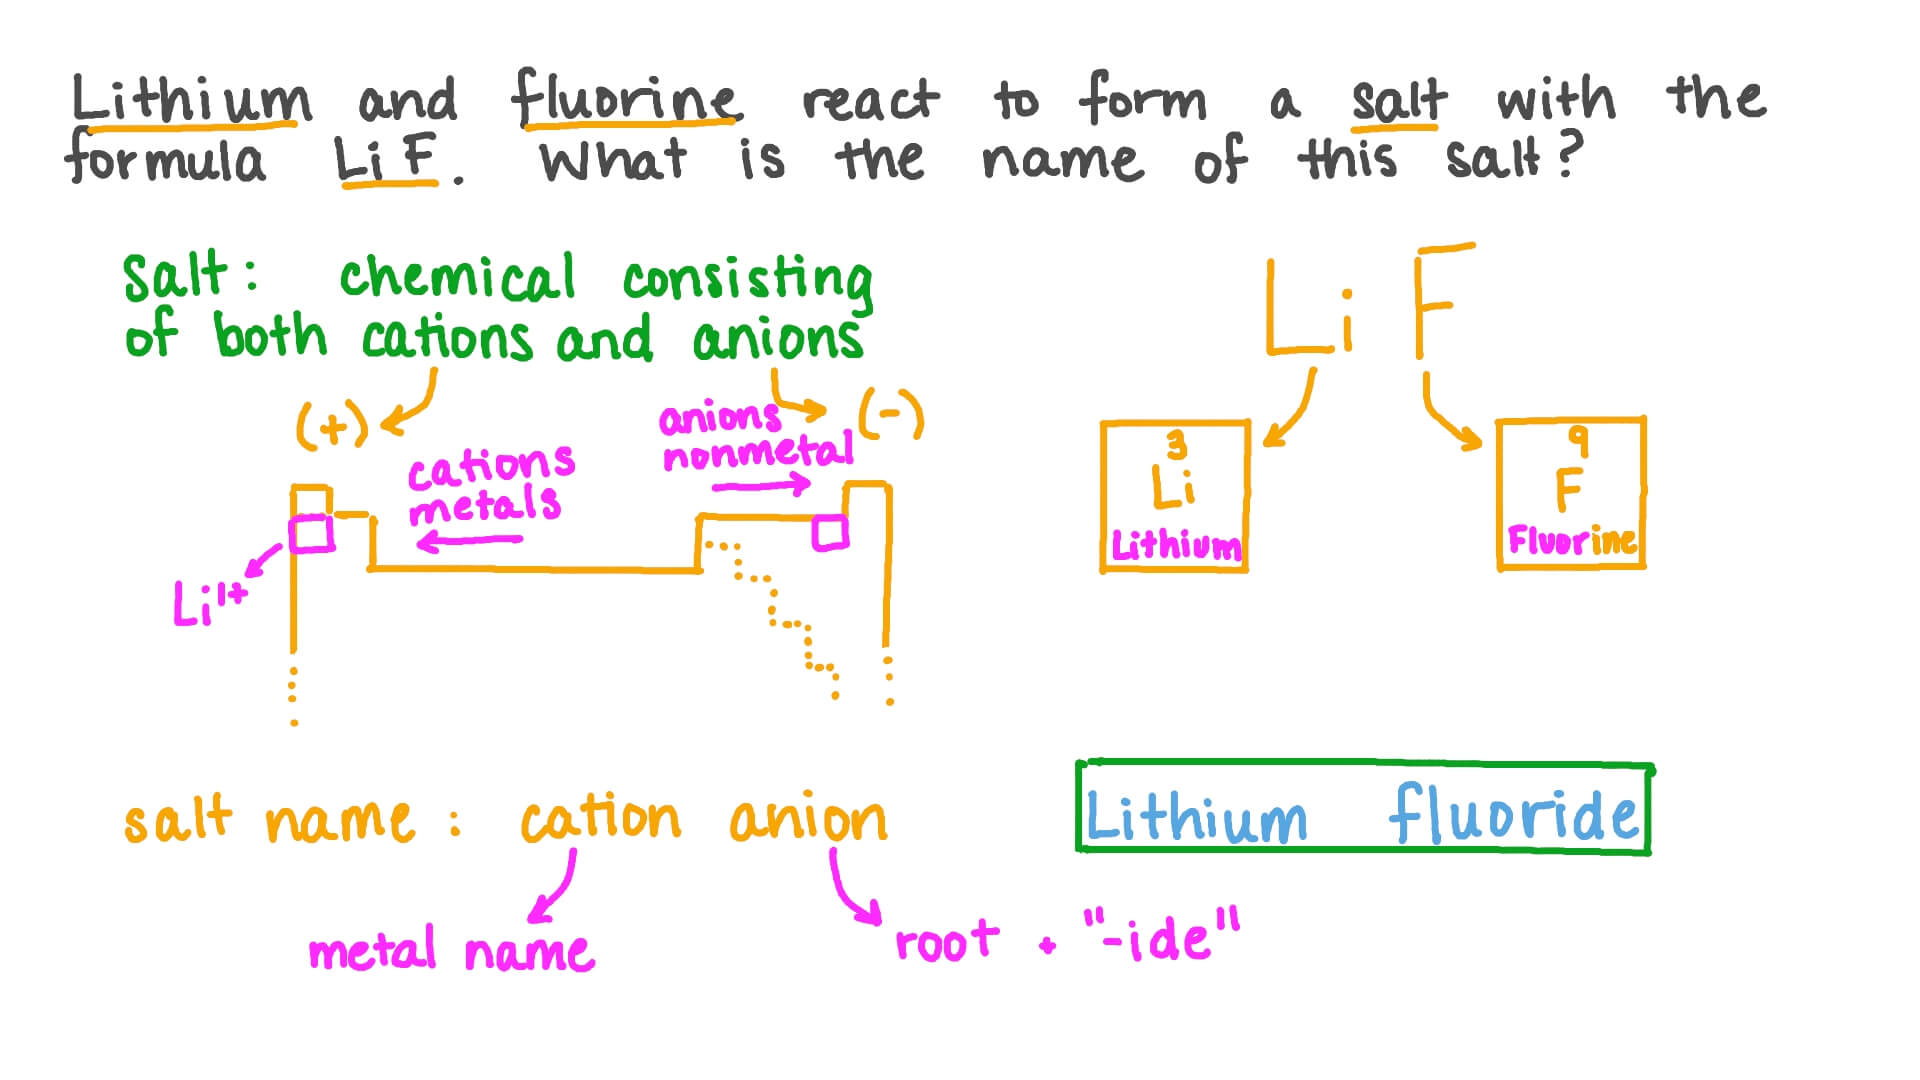 Lithium and fluorine react to form a salt with the
formula LiF. What is the name of this salt?
Salt: chemical consisting
of both cations and anions
(+)
(-)
anions
nonmetal
cations
metals
Li¹⁺
Li F
3
Li
Lithium
9
F
Fluorine
salt name: cation anion
metal name
root + "-ide"
Lithium fluoride